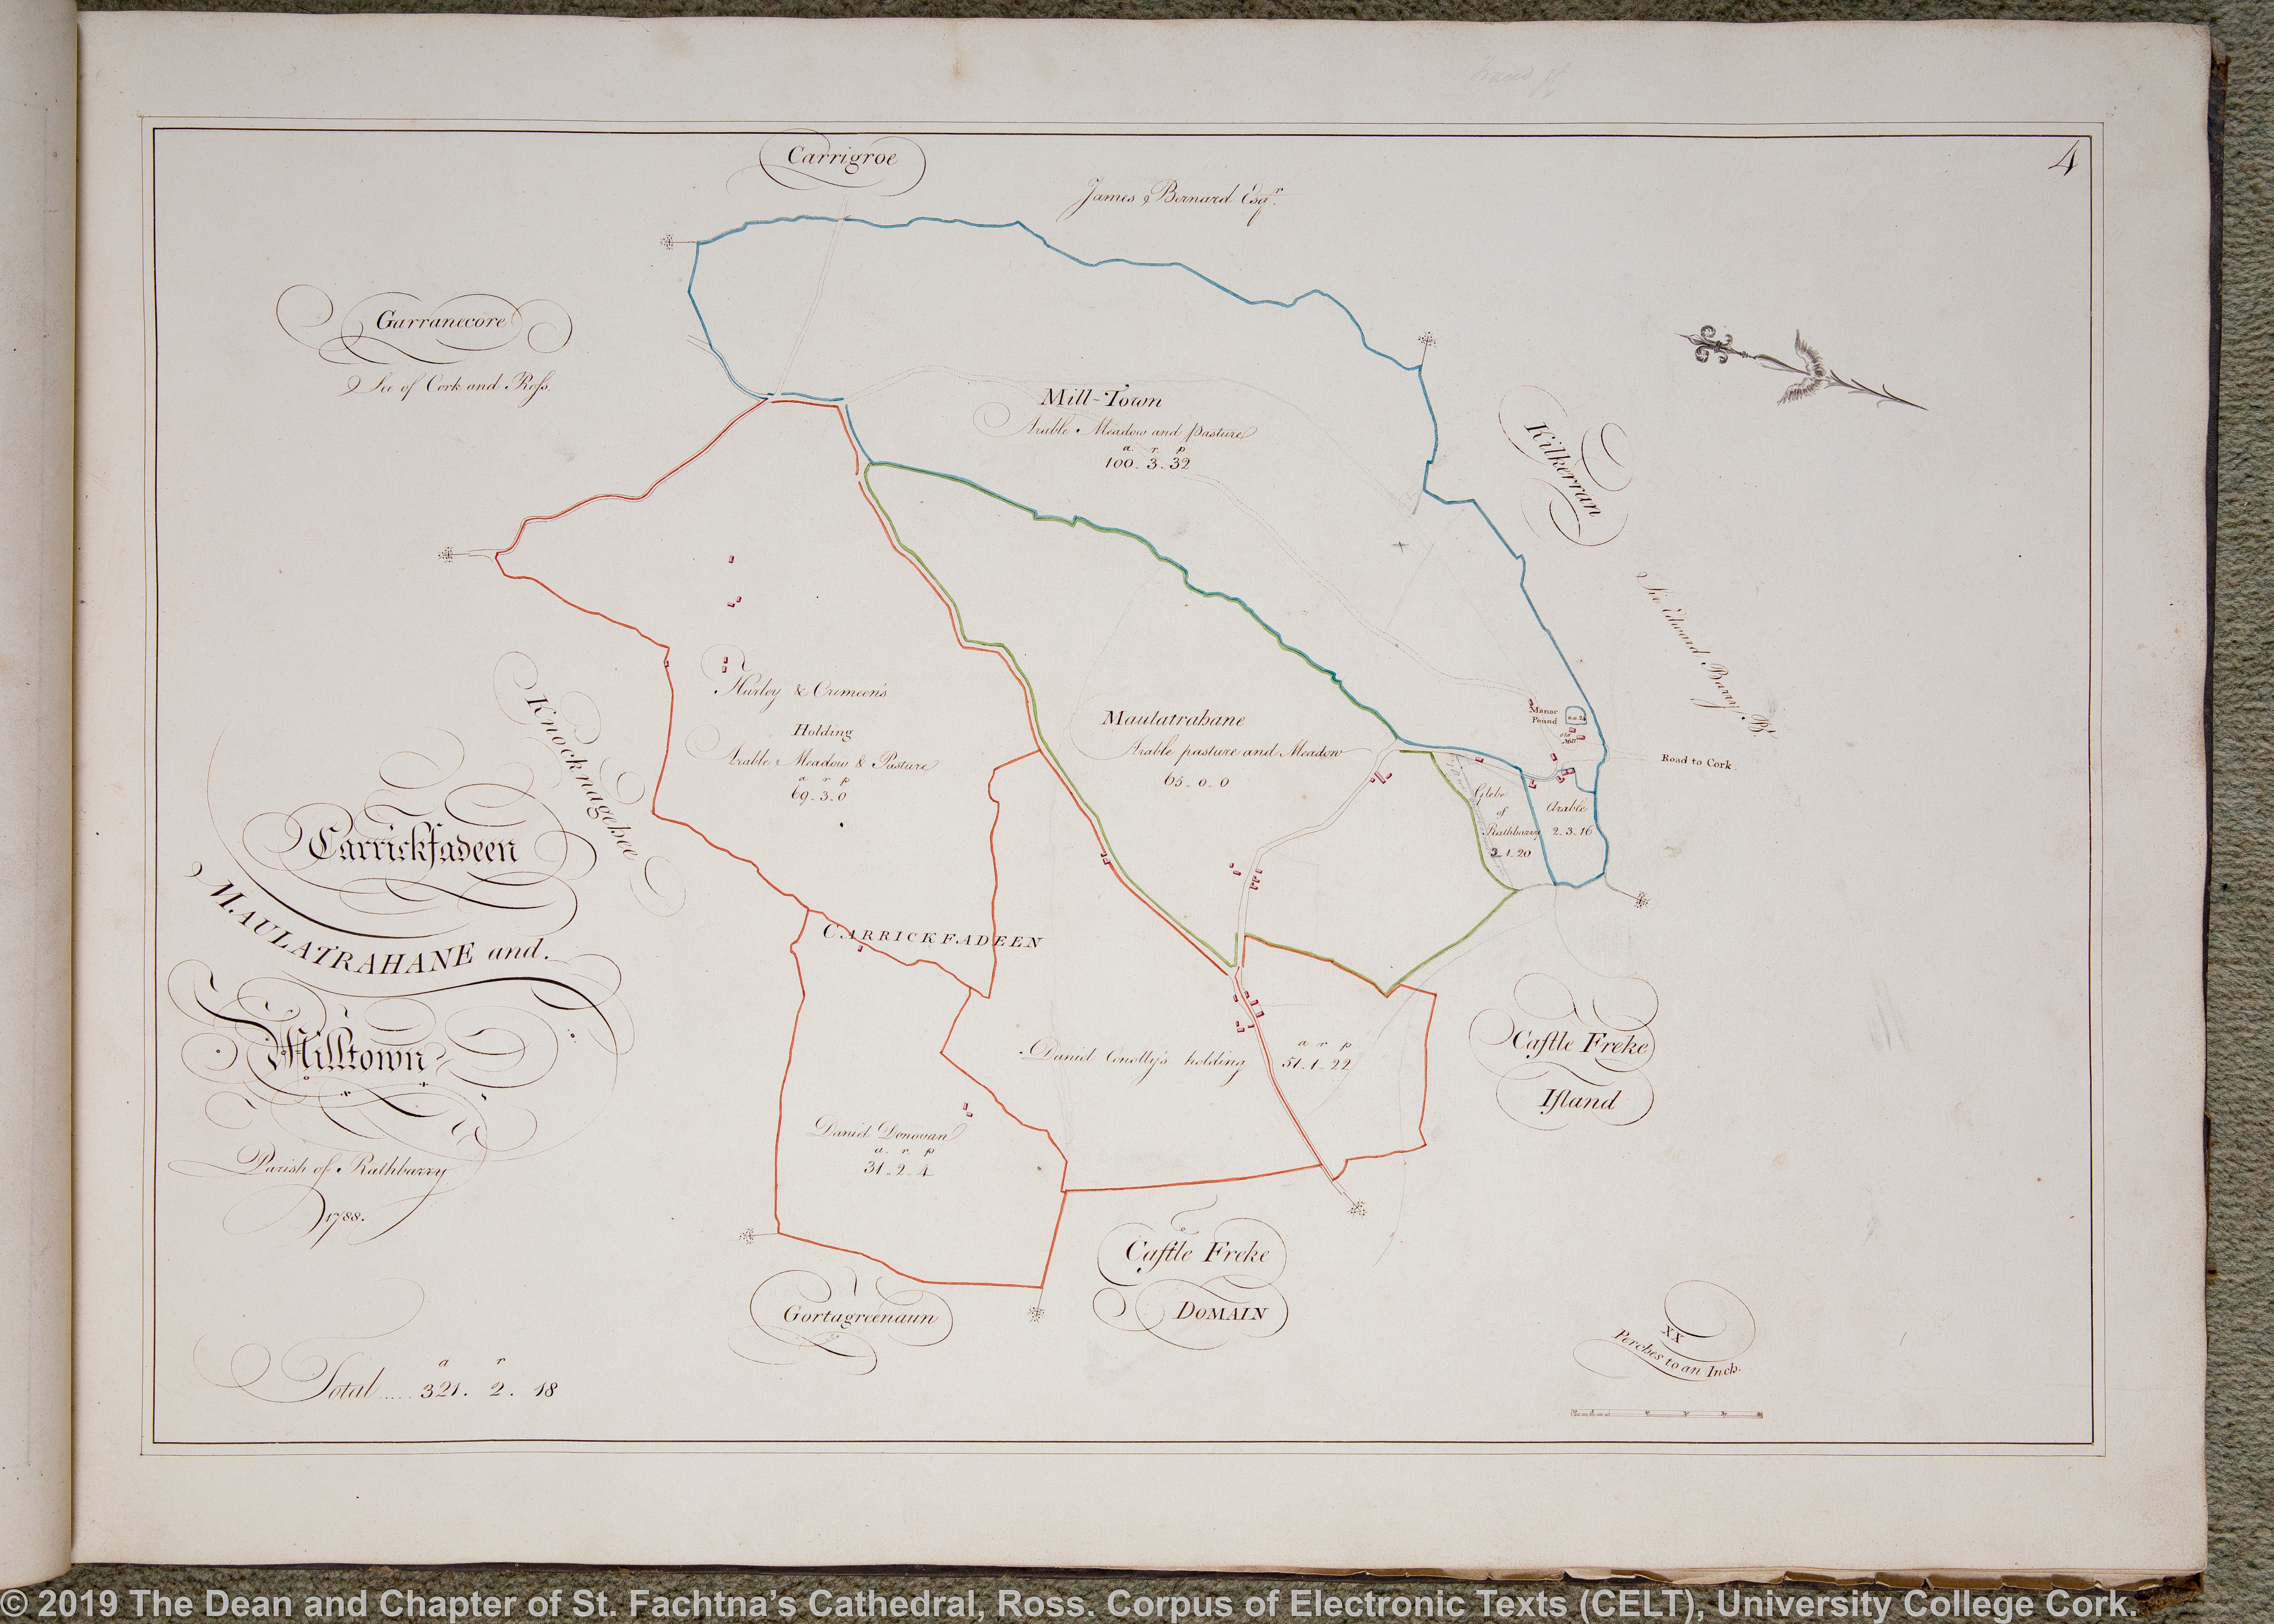 4
Carrigroe
James Bernard Esqr.
Garranecore
See of Cork and Ross.
Mill-Town
Arable Meadow and Pasture
a. r. p
100. 3. 32
Kilkerran
Sir Edward Barry Bt.
Knocknagehee
Hurley & Crimeen's
Holding
Arable Meadow & Pasture
a r p
69. 3. 0
Maulatrahane
Arable pasture and Meadow
65. 0. 0
Manor
Pound
old
Mill
Road to Cork.
Glebe
of
Rathbarry
3. 1. 20
Arable
2. 3. 16
Carrickfadeen
MAULATRAHANE and.
Milltown
Parish of Rathbarry
1788.
CARRICKFADEEN
Daniel Conolly's holding
a r p
51. 1. 22
Daniel Donovan
a. r. p
31. 2. 4
Castle Freke
Island
Castle Freke
DOMAIN
Gortagreenaun
a r
Total..... 321. 2. 18
XX
Perches to an Inch.
© 2019 The Dean and Chapter of St. Fachtna's Cathedral, Ross. Corpus of Electronic Texts (CELT), University College Cork.